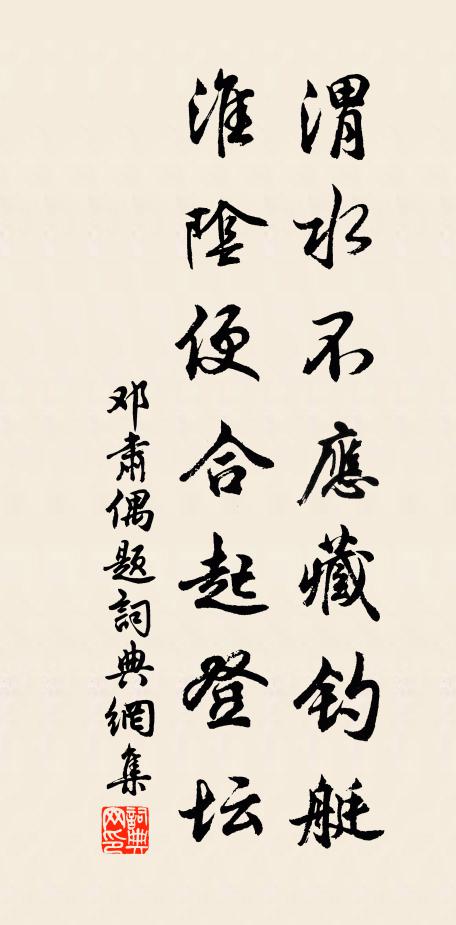 渭水不應藏钓艇
淮陰便合起登坛
邓肅偶题詞典網集
詞典网印